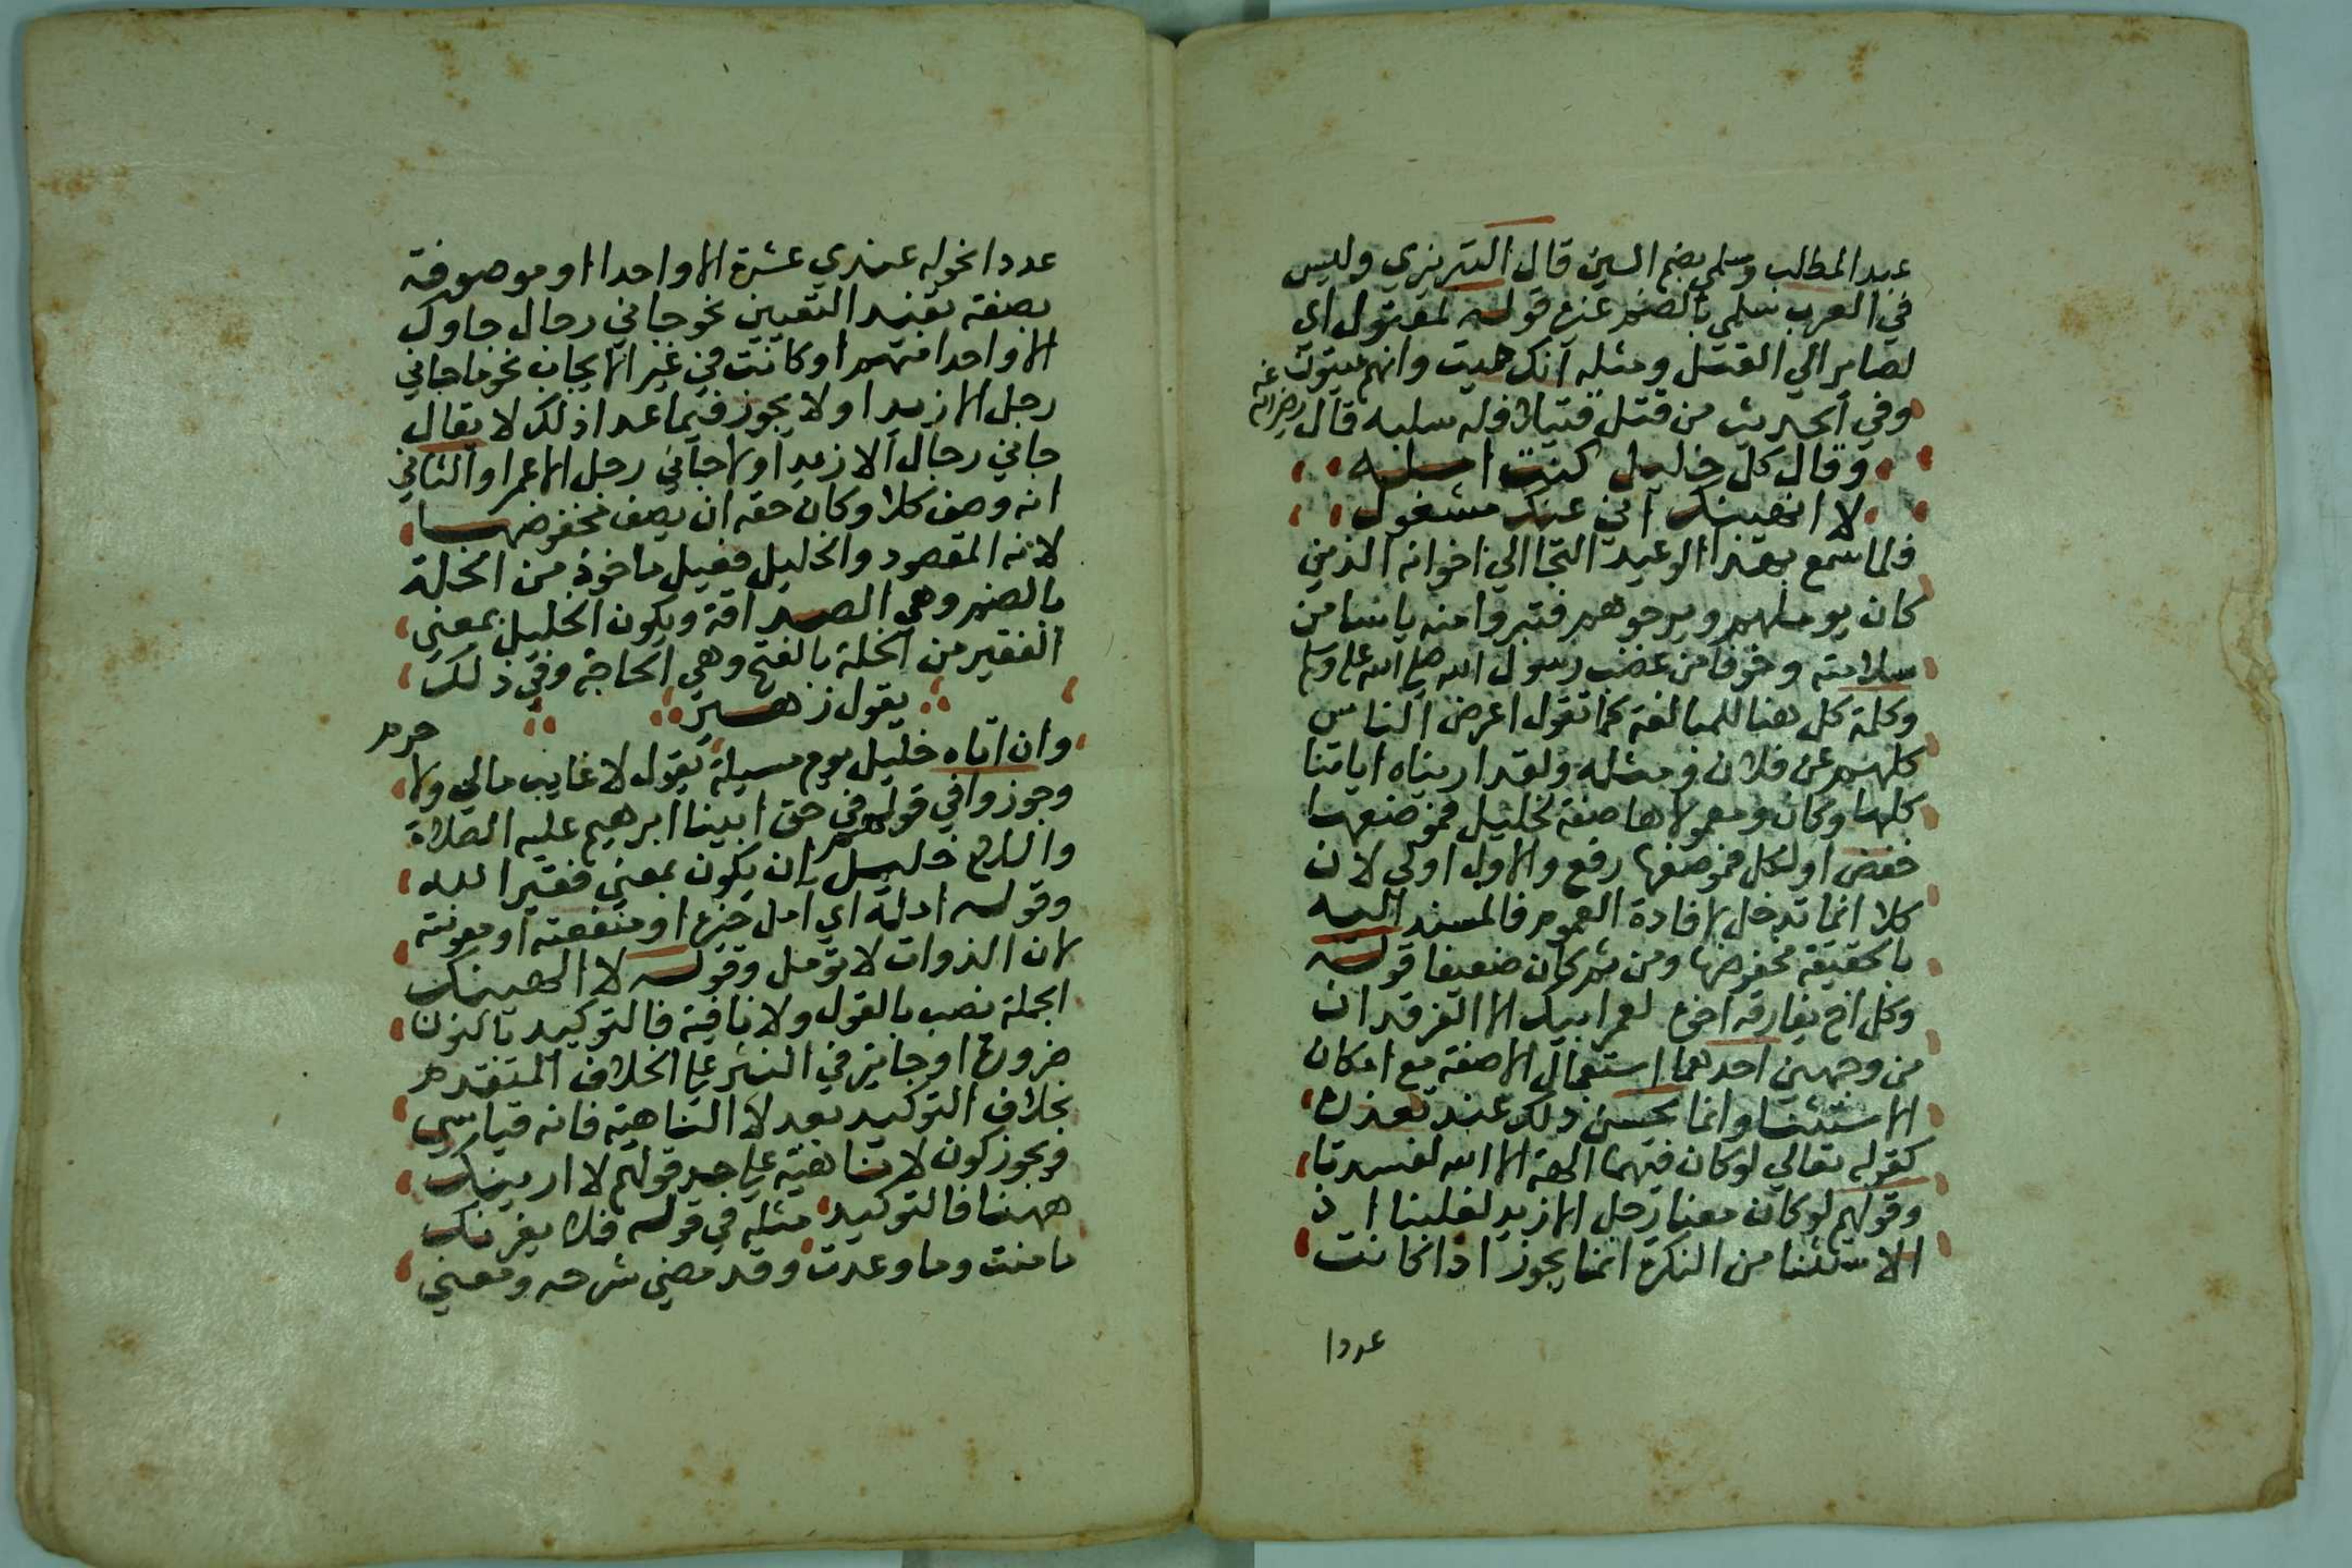 عبد المطلب وسلمي بضم السين قال التبريزي وليس
في العرب سلمي بالضم غيره قوله لمقتول اي
لصاير الي القتل ومثله انك ميت وانهم ميتون
وفي الحديث من قتل قتيلا فله سلبه قال رضي الله عنه
وقال كل خليل كنت امله
لا الهينك اني عنك مشغول
فلما سمع بهذا الوعيد التجا الي اخوانه الذين
كان يوملهم ويرجوهم فتبروا منه ياسا من
سلامته وخوفا من غضب رسول الله صلي الله عليه وسلم
وكلمة كل هنا للمبالغة كما تقول اعرض الناس
كلهم عن فلان ومثله ولقد اريناه اياتنا
كلها وكان ومعمولاها صفة لخليل فموضعها
خفض او لكل فموضعها رفع والاول اولي لان
كلا انما تدخل لافادة العموم فالمسند اليه
بالحقيقة مخفوضها ومن ثم كان ضعيفا قوله
وكل اخ يفارقه اخوه لعمر ابيك الا الفرقدان
من وجهين احدهما استعمال الا صفة مع امكان
الاستثنا وانما يحسن ذلك عند تعذره
كقوله تعالي لو كان فيهما الهة الا الله لفسدتا
وقولهم لو كان معنا رجل الا زيد لغلبنا اذ
الاستثنا من النكرة انما يجوز اذا كانت
عددا
عددا نحو له عندي عشرة الا واحدا او موصوفة
بصفة تفيد التعيين نحو جاني رجال جاوك
الا واحدا منهم او كانت في غير الايجاب نحو ما جاني
رجل الا زيدا ولا يجوز فيما عدا ذلك لا يقال
جاني رجال الا زيدا ولا جاني رجل الا عمرا والثاني
انه وصف كلا وكان حقه ان يصف مخفوضها
لانه المقصود والخليل فعيل ماخوذ من الخلة
بالضم وهي الصداقة ويكون الخليل بمعني
الفقير من الخلة بالفتح وهي الحاجة وفي ذلك
يقول زهير
وان اتاه خليل يوم مسيلة يقول لا غايب مالي ولا حرم
وجوزوا في قولهم في حق ابينا ابرهيم عليه الصلاة
والسلام خليل ان يكون بمعني فقير الله
وقوله امله اي امل خيره او منفعته او معونته
لان الذوات لا تومل وقوله لا الهينك
الجملة نصب بالقول ولا نافية فالتوكيد بالنون
ضرورة او جايز في النثر علي الخلاف المتقدم
بخلاف التوكيد بعد لا الناهية فانه قياسي
ويجوز كون لا ناهية علي حد قولهم لا ارينك
ههنا فالتوكيد مثله في قوله فلا يغرنك
ما منت وما وعدت وقد مضي شرحه ومعني